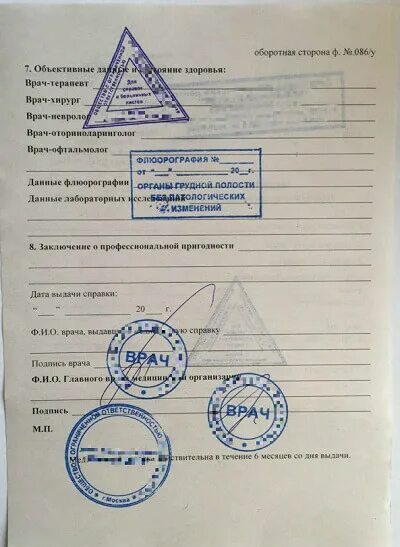 оборотная сторона ф. №.086/у
7. Объективные данные и состояние здоровья:
Врач-терапевт
Для справок и больничных листов
Врач-хирург
Врач-невролог
Врач-оториноларинголог
Врач-офтальмолог
ФЛЮОРОГРАФИЯ №
от "__" 20__г.
Данные флюорографии
ОРГАНЫ ГРУДНОЙ ПОЛОСТИ
Данные лабораторных исследований
БЕЗ ПАТОЛОГИЧЕСКИХ
ИЗМЕНЕНИЙ
8. Заключение о профессиональной пригодности
Дата выдачи справки:
"___" 20___г.
Ф.И.О. врача, выдавшего справку
ВРАЧ
Подпись врача
Ф.И.О. Главного организации
ВРАЧ
Подпись
ОБЩЕСТВО С ОГРАНИЧЕННОЙ ОТВЕТСТВЕННОСТЬЮ
М.П.
действительна в течение 6 месяцев со дня выдачи.
г.Москва